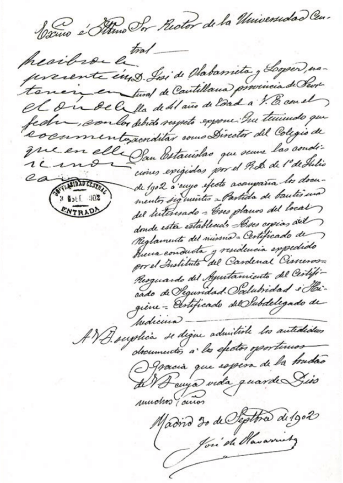 Excmo e Iltmo Sor Rector de la Universidad Cen-
tral
Recibida la
presente ins-
tancia en
el dia de la
fecha, con los
documentos
que en ella
se
D. José de Olabarrieta y Lopez, na-
tural de Cantillana provincia de Sevi-
lla de 41 años de Edad a V. E. con el
debido respeto expone: Que teniendo que
acreditar como Director del Colegio de
San Estanislao que reune las condi-
ciones exigidas por el R.D. de 1º de Julio
de 1902 á cuyo efecto acompaña los docu-
mentos siguientes = Partida de bautismo
del interesado = Tres planos del local
donde esta establecido = Tres copias del
Reglamento del mismo = Certificado de
buena conducta y residencia expedido
por el Instituto del Cardenal Cisneros =
Resguardo del Ayuntamiento del Certifi-
cado de Seguridad, Salubridad é Hi-
giene = Certificado del Subdelegado de
Medicina
A V. E. suplica se digne admitirle los antedichos
documentos á los efectos oportunos
Gracia que espera de la bondad
de V. E. cuya vida guarde Dios
muchos años
Madrid 30 de Septbre de 1902
José de Olavarrieta
UNIVERSIDAD CENTRAL
1902
ENTRADA